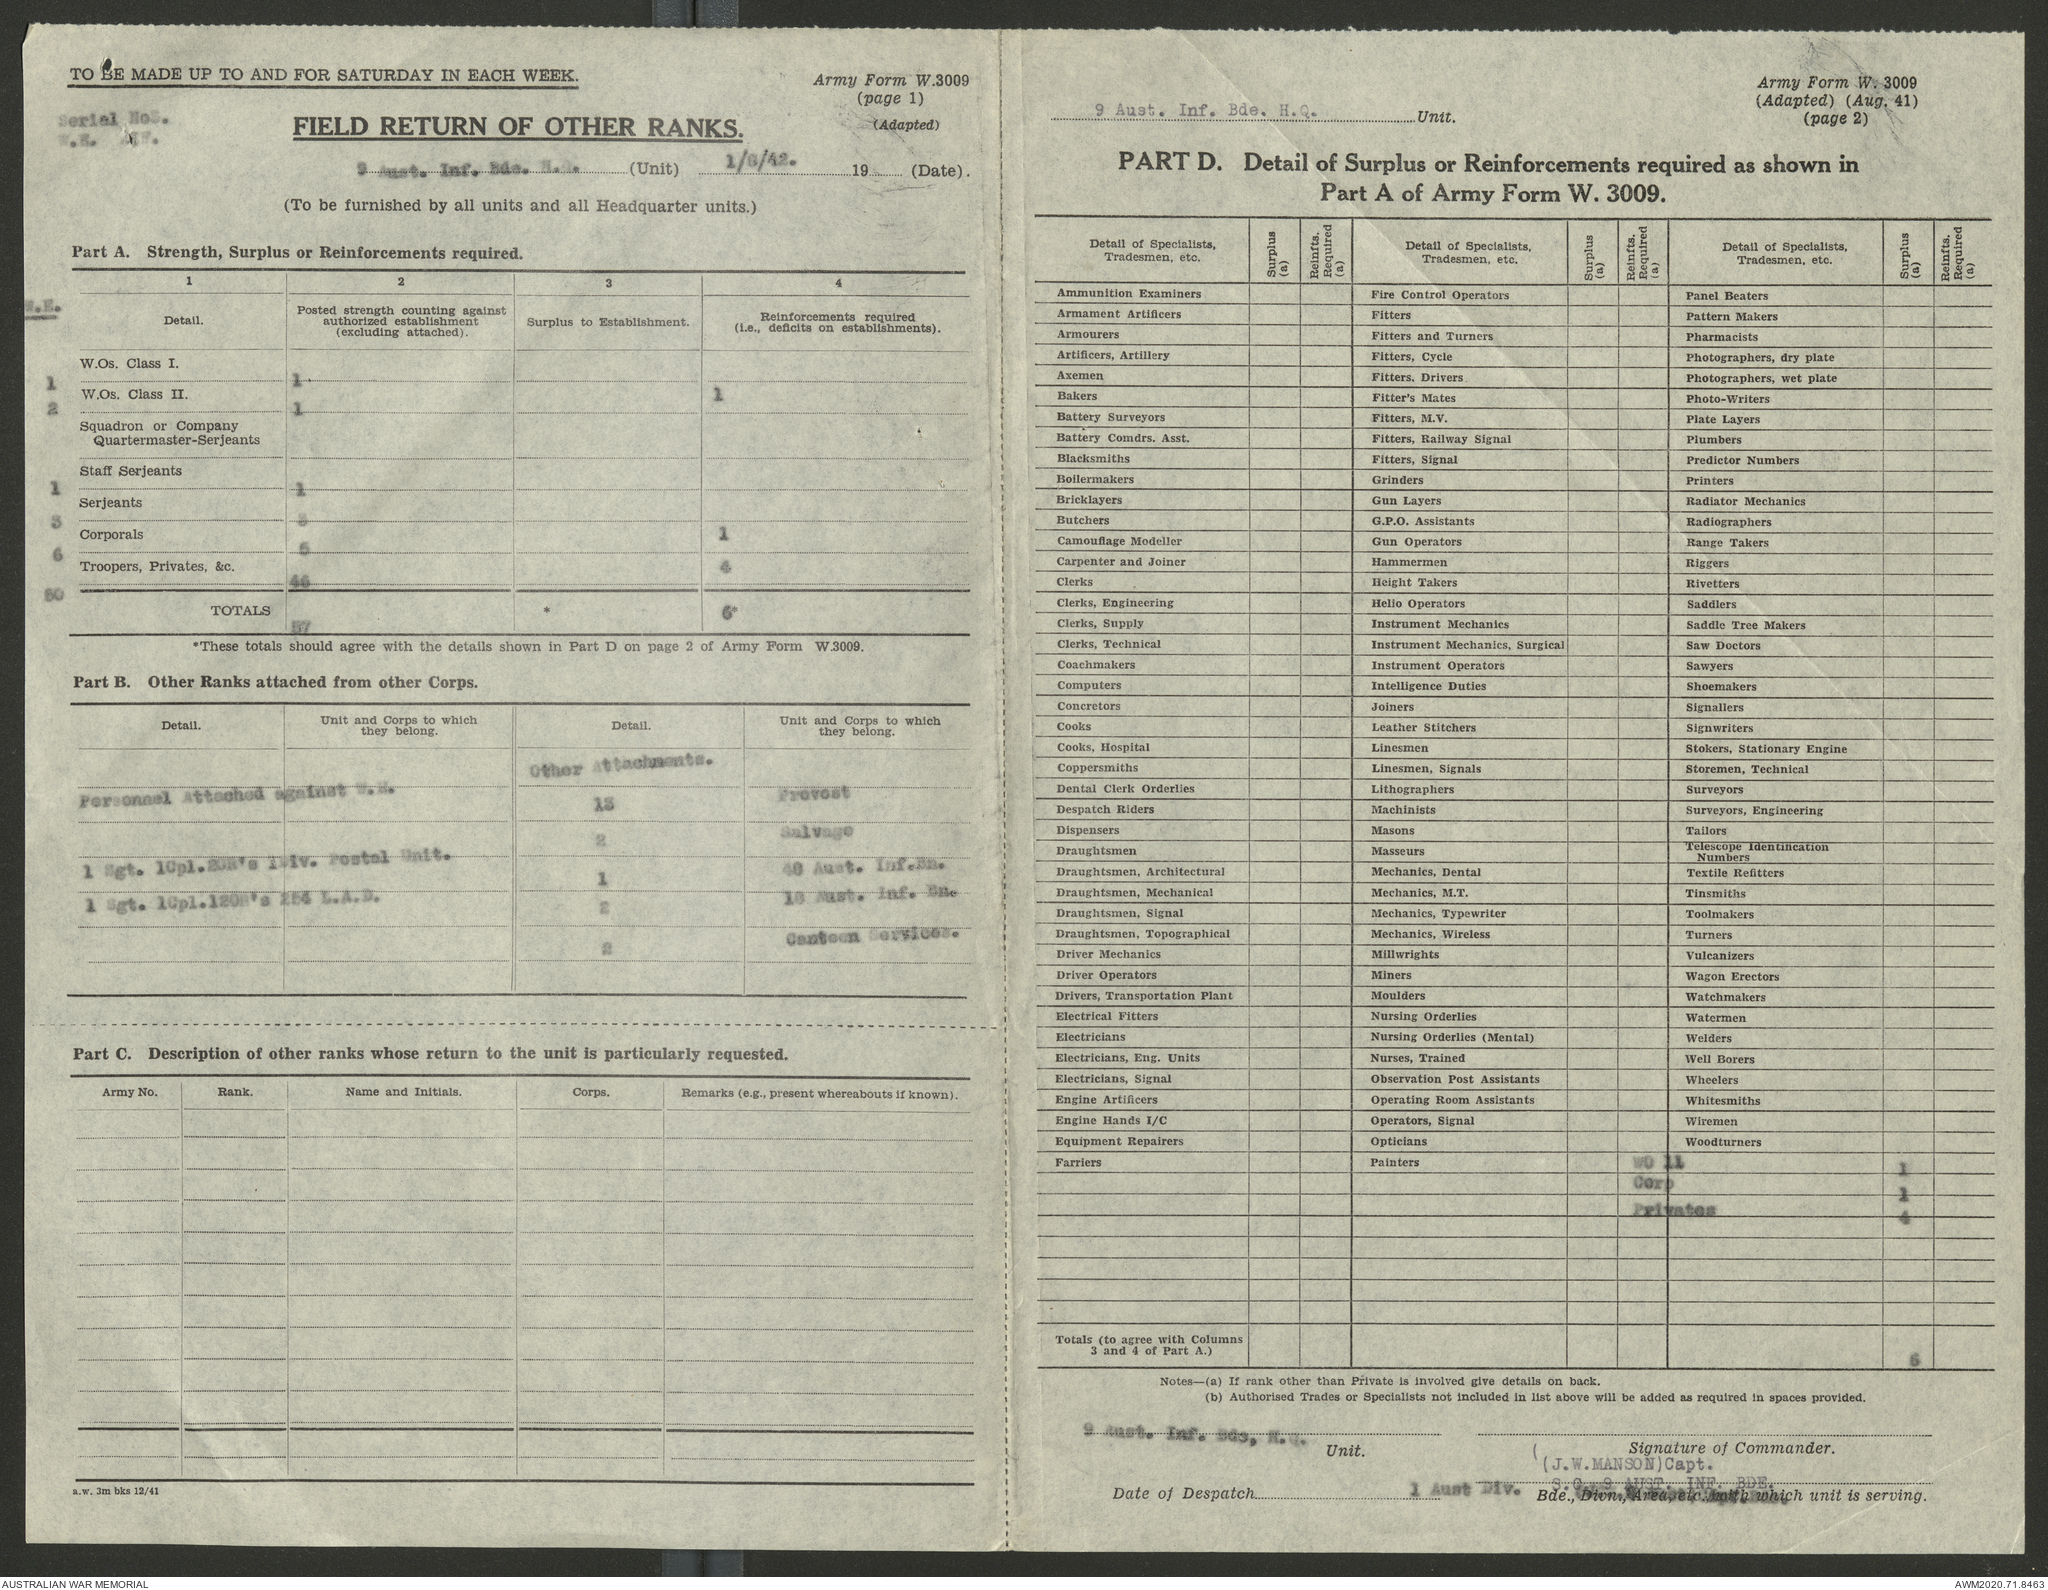 TO BE MADE UP TO AND FOR SATURDAY IN EACH WEEK.
Army Form W.3009
(page 1)
(Adapted)
Serial Nos.
W.E.
FIELD RETURN OF OTHER RANKS.
9 Aust. Inf. Bde. H.Q. (Unit) 1/8/42. 19 (Date).
(To be furnished by all units and all Headquarter units.)
Part A. Strength, Surplus or Reinforcements required.
1 2 3 4
W.E.
Detail.
Posted strength counting against authorized establishment (excluding attached).
Surplus to Establishment.
Reinforcements required (i.e., deficits on establishments).
W.Os. Class I.
1 1
W.Os. Class II. 1
2 1
Squadron or Company
Quartermaster-Serjeants
Staff Serjeants
1 1
Serjeants
3 3
Corporals 1
6 5
Troopers, Privates, &c. 4
50 46
TOTALS * 6*
57
*These totals should agree with the details shown in Part D on page 2 of Army Form W.3009.
Part B. Other Ranks attached from other Corps.
Detail. Unit and Corps to which they belong. Detail. Unit and Corps to which they belong.
Other Attachments.
Personnel Attached against W.E. 13 Provost
2 Salvage
1 Sgt. 1Cpl. 2OR's 1Div. Postal Unit. 1 Aust. Inf. Bn.
1 Sgt. 1Cpl. 12OR's 254 L.A.D. 2 Aust. Inf. Bn.
2 Canteen Services.
Part C. Description of other ranks whose return to the unit is particularly requested.
Army No. Rank. Name and Initials. Corps. Remarks (e.g., present whereabouts if known).
a.w. 3m bks 12/41
Army Form W. 3009
(Adapted) (Aug. 41)
(page 2)
9 Aust. Inf. Bde. H.Q. Unit.
PART D. Detail of Surplus or Reinforcements required as shown in
Part A of Army Form W. 3009.
Detail of Specialists, Tradesmen, etc. Surplus (a) Reinfts. Required (a) Detail of Specialists, Tradesmen, etc. Surplus (a) Reinfts. Required (a) Detail of Specialists, Tradesmen, etc. Surplus (a) Reinfts. Required (a)
Ammunition Examiners Fire Control Operators Panel Beaters
Armament Artificers Fitters Pattern Makers
Armourers Fitters and Turners Pharmacists
Artificers, Artillery Fitters, Cycle Photographers, dry plate
Axemen Fitters. Drivers Photographers, wet plate
Bakers Fitter's Mates Photo-Writers
Battery Surveyors Fitters, M.V. Plate Layers
Battery Comdrs. Asst. Fitters, Railway Signal Plumbers
Blacksmiths Fitters, Signal Predictor Numbers
Boilermakers Grinders Printers
Bricklayers Gun Layers Radiator Mechanics
Butchers G.P.O. Assistants Radiographers
Camouflage Modeller Gun Operators Range Takers
Carpenter and Joiner Hammermen Riggers
Clerks Height Takers Rivetters
Clerks, Engineering Helio Operators Saddlers
Clerks, Supply Instrument Mechanics Saddle Tree Makers
Clerks, Technical Instrument Mechanics, Surgical Saw Doctors
Coachmakers Instrument Operators Sawyers
Computers Intelligence Duties Shoemakers
Concretors Joiners Signallers
Cooks Leather Stitchers Signwriters
Cooks, Hospital Linesmen Stokers, Stationary Engine
Coppersmiths Linesmen, Signals Storemen, Technical
Dental Clerk Orderlies Lithographers Surveyors
Despatch Riders Machinists Surveyors, Engineering
Dispensers Masons Tailors
Draughtsmen Masseurs Telescope Identification Numbers
Draughtsmen, Architectural Mechanics, Dental Textile Refitters
Draughtsmen, Mechanical Mechanics, M.T. Tinsmiths
Draughtsmen, Signal Mechanics, Typewriter Toolmakers
Draughtsmen, Topographical Mechanics, Wireless Turners
Driver Mechanics Millwrights Vulcanizers
Driver Operators Miners Wagon Erectors
Drivers, Transportation Plant Moulders Watchmakers
Electrical Fitters Nursing Orderlies Watermen
Electricians Nursing Orderlies (Mental) Welders
Electricians, Eng. Units Nurses, Trained Well Borers
Electricians, Signal Observation Post Assistants Wheelers
Engine Artificers Operating Room Assistants Whitesmiths
Engine Hands I/C Operators, Signal Wiremen
Equipment Repairers Opticians Woodturners
Farriers Painters WO 11 1
Corp 1
Privates 4
Totals (to agree with Columns
3 and 4 of Part A.) 6
Notes—(a) If rank other than Private is involved give details on back.
(b) Authorised Trades or Specialists not included in list above will be added as required in spaces provided.
9 Aust. Inf. Bde, H.Q.
Unit. Signature of Commander.
(J.W.MANSON)Capt.
S.C. 9 AUST. INF. BDE.
Date of Despatch 1 Aust Div. Bde., Divn., Area, etc. with which unit is serving.
AUSTRALIAN WAR MEMORIAL
AWM2020.71.8463